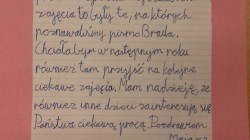 zajęcia to były te, na których
poznawaliśmy pismo Braila.
Chciałabym w następnym roku
również tam przyjść na kolejne
ciekawe zajęcia. Mam nadzieję, że
również inne dzieci zainteresują się
Państwa ciekawą pracą. Pozdrawiam